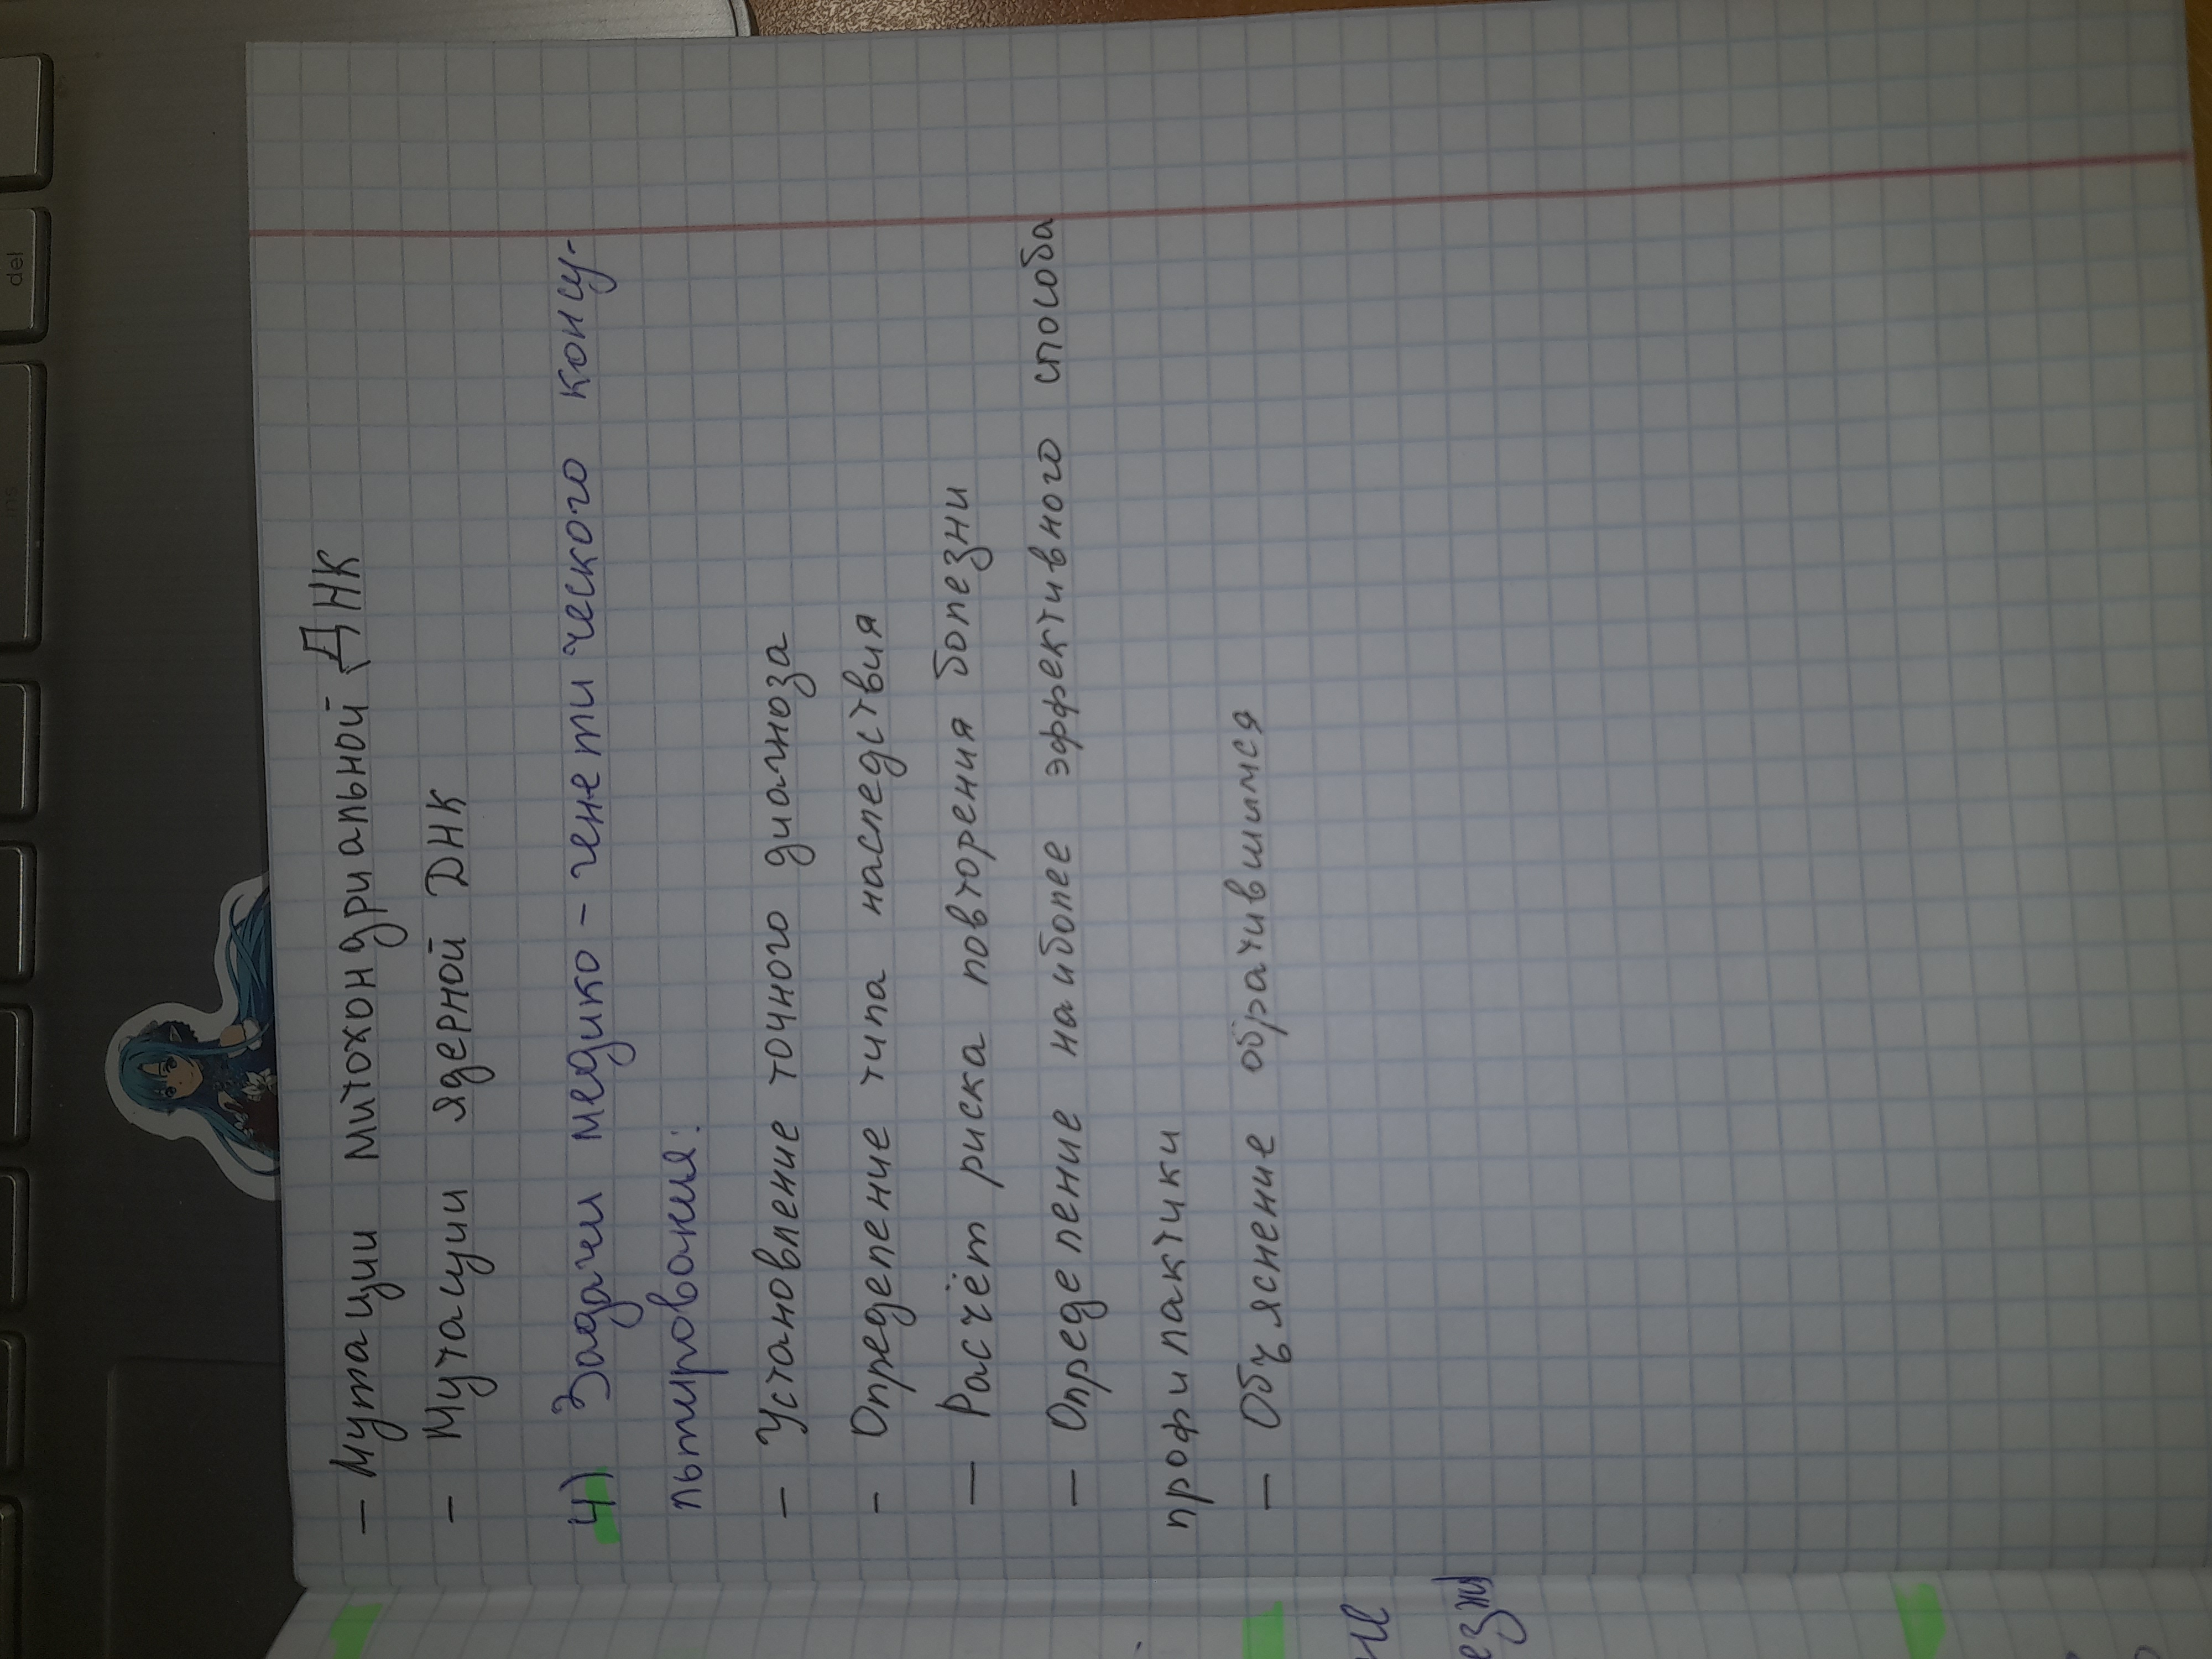 - Мутации митохондриальной ДНК
- Мутации ядерной ДНК
4) Задачи медико-генетического консу-
льтирования:
- Установление точного диагноза
- Определение типа наследствия
- Расчёт риска повторения болезни
- Определение наиболее эффективного способа
профилактики
- Объяснение обратившимся
del
ins